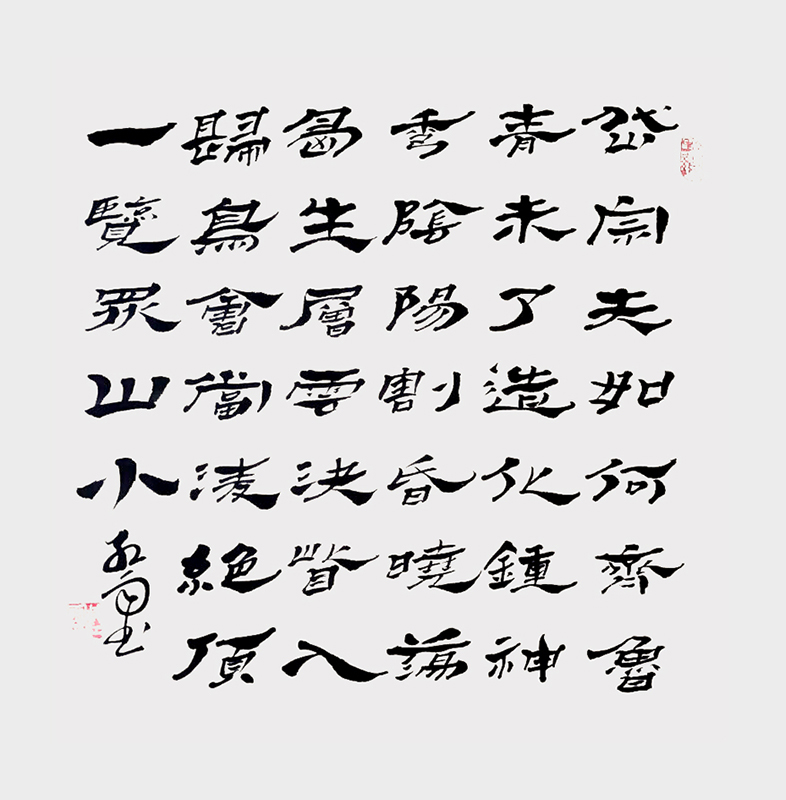 岱宗夫如何齊魯
青未了造化鍾神
秀陰陽割昏曉蕩
胷生層雲決眥入
歸鳥會當淩絕頂
一覽眾山小
书